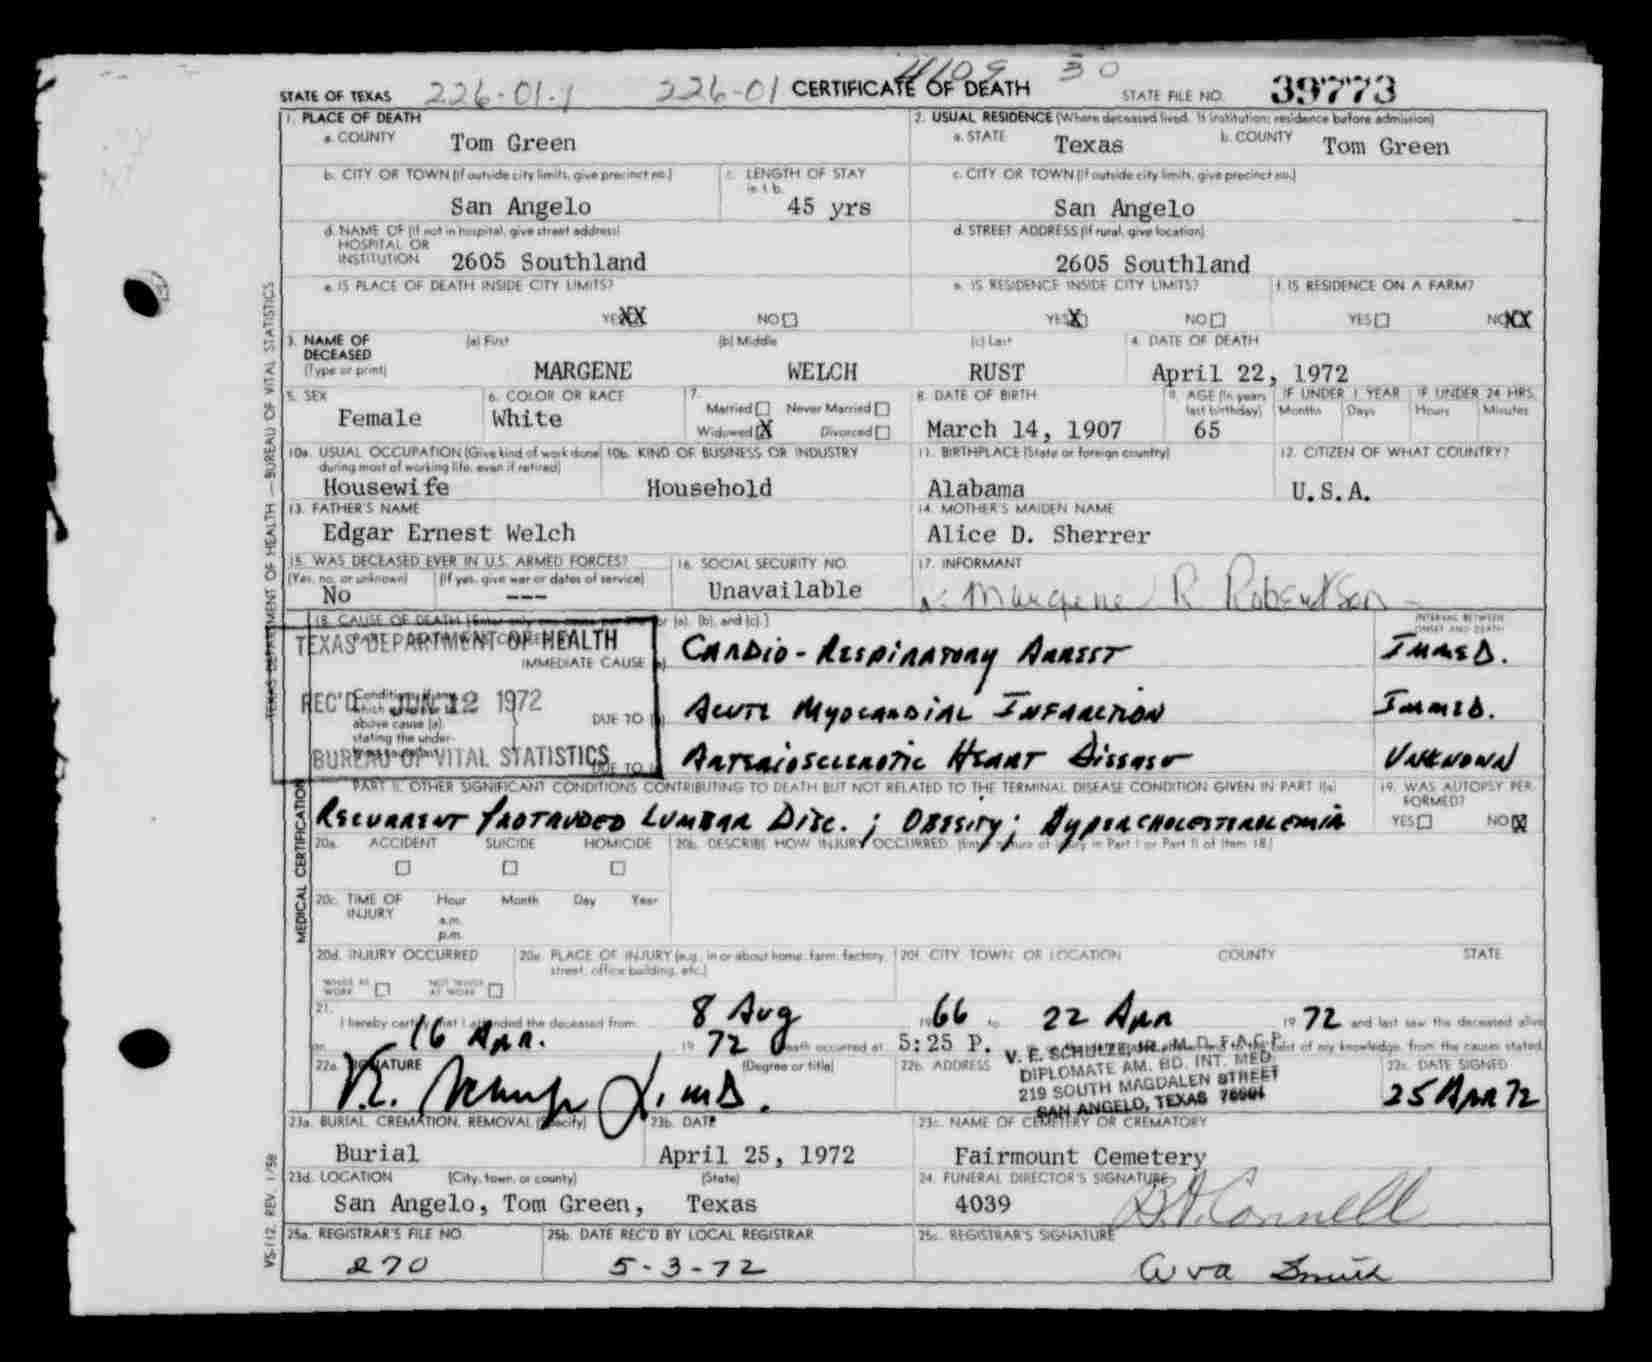 41609 30
STATE OF TEXAS 226-01.1 226-01 CERTIFICATE OF DEATH STATE FILE NO. 39773
1. PLACE OF DEATH
a. COUNTY Tom Green
2. USUAL RESIDENCE (Where deceased lived. If institution: residence before admission)
a. STATE Texas b. COUNTY Tom Green
b. CITY OR TOWN (If outside city limits, give precinct no.) San Angelo
c. LENGTH OF STAY in 1b. 45 yrs
c. CITY OR TOWN (If outside city limits, give precinct no.) San Angelo
d. NAME OF (If not in hospital, give street address)
HOSPITAL OR
INSTITUTION 2605 Southland
d. STREET ADDRESS (If rural, give location)
2605 Southland
e. IS PLACE OF DEATH INSIDE CITY LIMITS?
YES XX NO
e. IS RESIDENCE INSIDE CITY LIMITS?
YES X NO
f. IS RESIDENCE ON A FARM?
YES NO XX
3. NAME OF DECEASED (Type or print)
(a) First (b) Middle (c) Last
MARGENE WELCH RUST
4. DATE OF DEATH
April 22, 1972
5. SEX
Female
6. COLOR OR RACE
White
7.
Married Never Married
Widowed X Divorced
8. DATE OF BIRTH
March 14, 1907
9. AGE (In years last birthday)
65
IF UNDER 1 YEAR
Months Days
IF UNDER 24 HRS.
Hours Minutes
10a. USUAL OCCUPATION (Give kind of work done during most of working life, even if retired)
Housewife
10b. KIND OF BUSINESS OR INDUSTRY
Household
11. BIRTHPLACE (State or foreign country)
Alabama
12. CITIZEN OF WHAT COUNTRY?
U.S.A.
13. FATHER'S NAME
Edgar Ernest Welch
14. MOTHER'S MAIDEN NAME
Alice D. Sherrer
15. WAS DECEASED EVER IN U.S. ARMED FORCES?
(Yes, no, or unknown) (If yes, give war or dates of service)
No ---
16. SOCIAL SECURITY NO.
Unavailable
17. INFORMANT
Margene R Robertson
18. CAUSE OF DEATH (Enter only one cause per line for (a), (b), and (c).)
INTERVAL BETWEEN ONSET AND DEATH
TEXAS DEPARTMENT OF HEALTH
REC'D JUN 12 1972
BUREAU OF VITAL STATISTICS
IMMEDIATE CAUSE (a) Cardio-Respiratory Arrest Immed.
Conditions, if any,
which
above cause (a),
stating the under-
DUE TO (b) Acute Myocardial Infarction Immed.
DUE TO (c) Arteriosclerotic Heart Disease Unknown
PART II. OTHER SIGNIFICANT CONDITIONS CONTRIBUTING TO DEATH BUT NOT RELATED TO THE TERMINAL DISEASE CONDITION GIVEN IN PART I(a)
Recurrent Protruded Lumbar Disc.; Obesity; Hypercholesterolemia
19. WAS AUTOPSY PERFORMED?
YES NO X
20a. ACCIDENT SUICIDE HOMICIDE
20b. DESCRIBE HOW INJURY OCCURRED. (Enter nature of injury in Part I or Part II of Item 18.)
20c. TIME OF INJURY Hour Month Day Year
a.m.
p.m.
20d. INJURY OCCURRED
WHILE AT WORK NOT WHILE AT WORK
20e. PLACE OF INJURY (e.g., in or about home, farm, factory, street, office building, etc.)
20f. CITY, TOWN, OR LOCATION COUNTY STATE
21.
I hereby certify that I attended the deceased from 8 Aug 1966 to 22 Apr 1972 and last saw the deceased alive
on 16 Apr. 1972 Death occurred at 5:25 P. of my knowledge, from the causes stated.
22a. SIGNATURE (Degree or title)
V.E. Schulze Jr. MD.
22b. ADDRESS
V. E. SCHULZE, JR., M.D., F.A.C.P.
DIPLOMATE AM. BD. INT. MED.
219 SOUTH MAGDALEN STREET
SAN ANGELO, TEXAS 76901
22c. DATE SIGNED
25 Apr 72
23a. BURIAL, CREMATION, REMOVAL (Specify)
Burial
23b. DATE
April 25, 1972
23c. NAME OF CEMETERY OR CREMATORY
Fairmount Cemetery
23d. LOCATION (City, town, or county) (State)
San Angelo, Tom Green, Texas
24. FUNERAL DIRECTOR'S SIGNATURE
4039
25a. REGISTRAR'S FILE NO.
270
25b. DATE REC'D BY LOCAL REGISTRAR
5-3-72
25c. REGISTRAR'S SIGNATURE
Ava Smith
TEXAS DEPARTMENT OF HEALTH — BUREAU OF VITAL STATISTICS
MEDICAL CERTIFICATION
VS-112 REV. 1/58